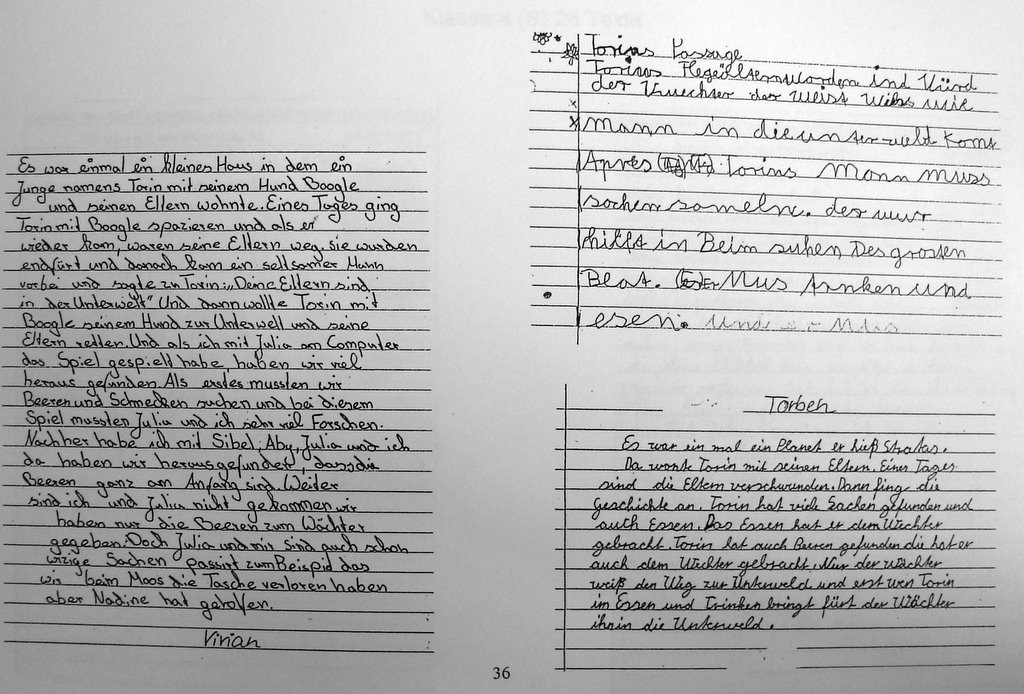 Es war einmal ein kleines Haus in dem ein
Junge namens Torin mit seinem Hund Boogle
und seinen Eltern wohnte. Eines Tages ging
Torin mit Boogle spazieren und als er
wieder kam, waren seine Eltern weg, sie wurden
endfürt und danach kam ein seltsamer Mann
vorbei und sagte zu Torin: „Deine Eltern sind
in der Unterwelt" Und dann wollte Torin mit
Boogle seinem Hund zur Unterwelt und seine
Eltern retten. Und als ich mit Julia am Computer
das Spiel gespielt habe, haben wir viel
heraus gefunden. Als erstes mussten wir
Beeren und Schnecken suchen und bei diesem
Spiel mussten Julia und ich sehr viel Forschen.
Nachher habe ich mit Sibel, Aby, Julia und ich
da haben wir herausgefunden, dass die
Beeren ganz am Anfang sind. Weiter
sind ich und Julia nicht gekommen wir
haben nur die Beeren zum Wächter
gegeben. Doch Julia und mir sind auch schon
wizige Sachen passirt zum Beispid das
wir beim Moos die Tasche verloren haben
aber Nadine hat geholfen.
Vivian
36
Torins Passage
Torins worden ind
der der Weist wie
mann in die unter-welt Komt
Apres Torins Mann muss
sachen sameln. der wur
hilft in Beim suhen Des grosten
Blat. Mus trnken und
esen. und er Mus
Torben
Es war ein mal ein Planet er hieß Stratas.
Da wonte Torin mit seinen Eltern. Eines Tages
sind die Eltern verschwunden. Dann fing die
Geschichte an. Torin hat viele Sachen gefunden und
auch Essen. Das Essen hat er dem Wächter
gebracht. Torin hat auch Beeren gefunden die hat er
auch dem Wächter gebracht. Nur der Wächter
weiß den Weg zur Unterweld und erst wen Torin
im Essen und Trinken bringt fürt der Wächter
ihn in die Unterweld.